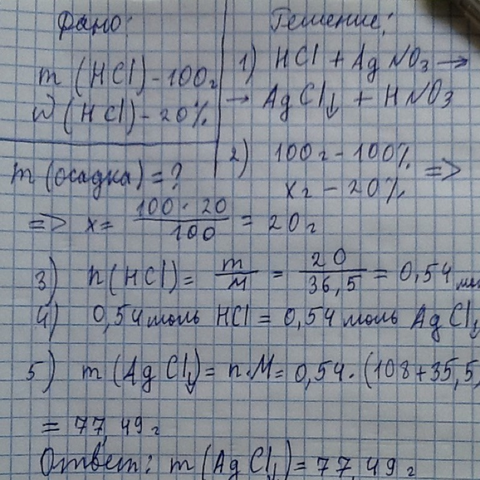 Дано:
m (HCl) - 100г
ω (HCl) - 20%
m (осадка) = ?
Решение:
1) HCl + AgNO₃ →
→ AgCl↓ + HNO₃
2) 100г - 100%
xг - 20% =>
=> x = 100 · 20 / 100 = 20г
3) n(HCl) = m / M = 20 / 36,5 = 0,54 мо
4) 0,54 моль HCl = 0,54 моль AgCl↓
5) m (AgCl↓) = n·M = 0,54 · (108 + 35,5)
= 77,49 г
Ответ: m (AgCl↓) = 77,49 г